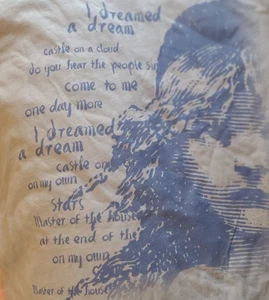 I dreamed
a dream
castle on a cloud
do you hear the people
come to me
one day more
I dreamed
a dream
castle on
on my own
stars
Master of the house
at the end of the
on my own
Master of the house